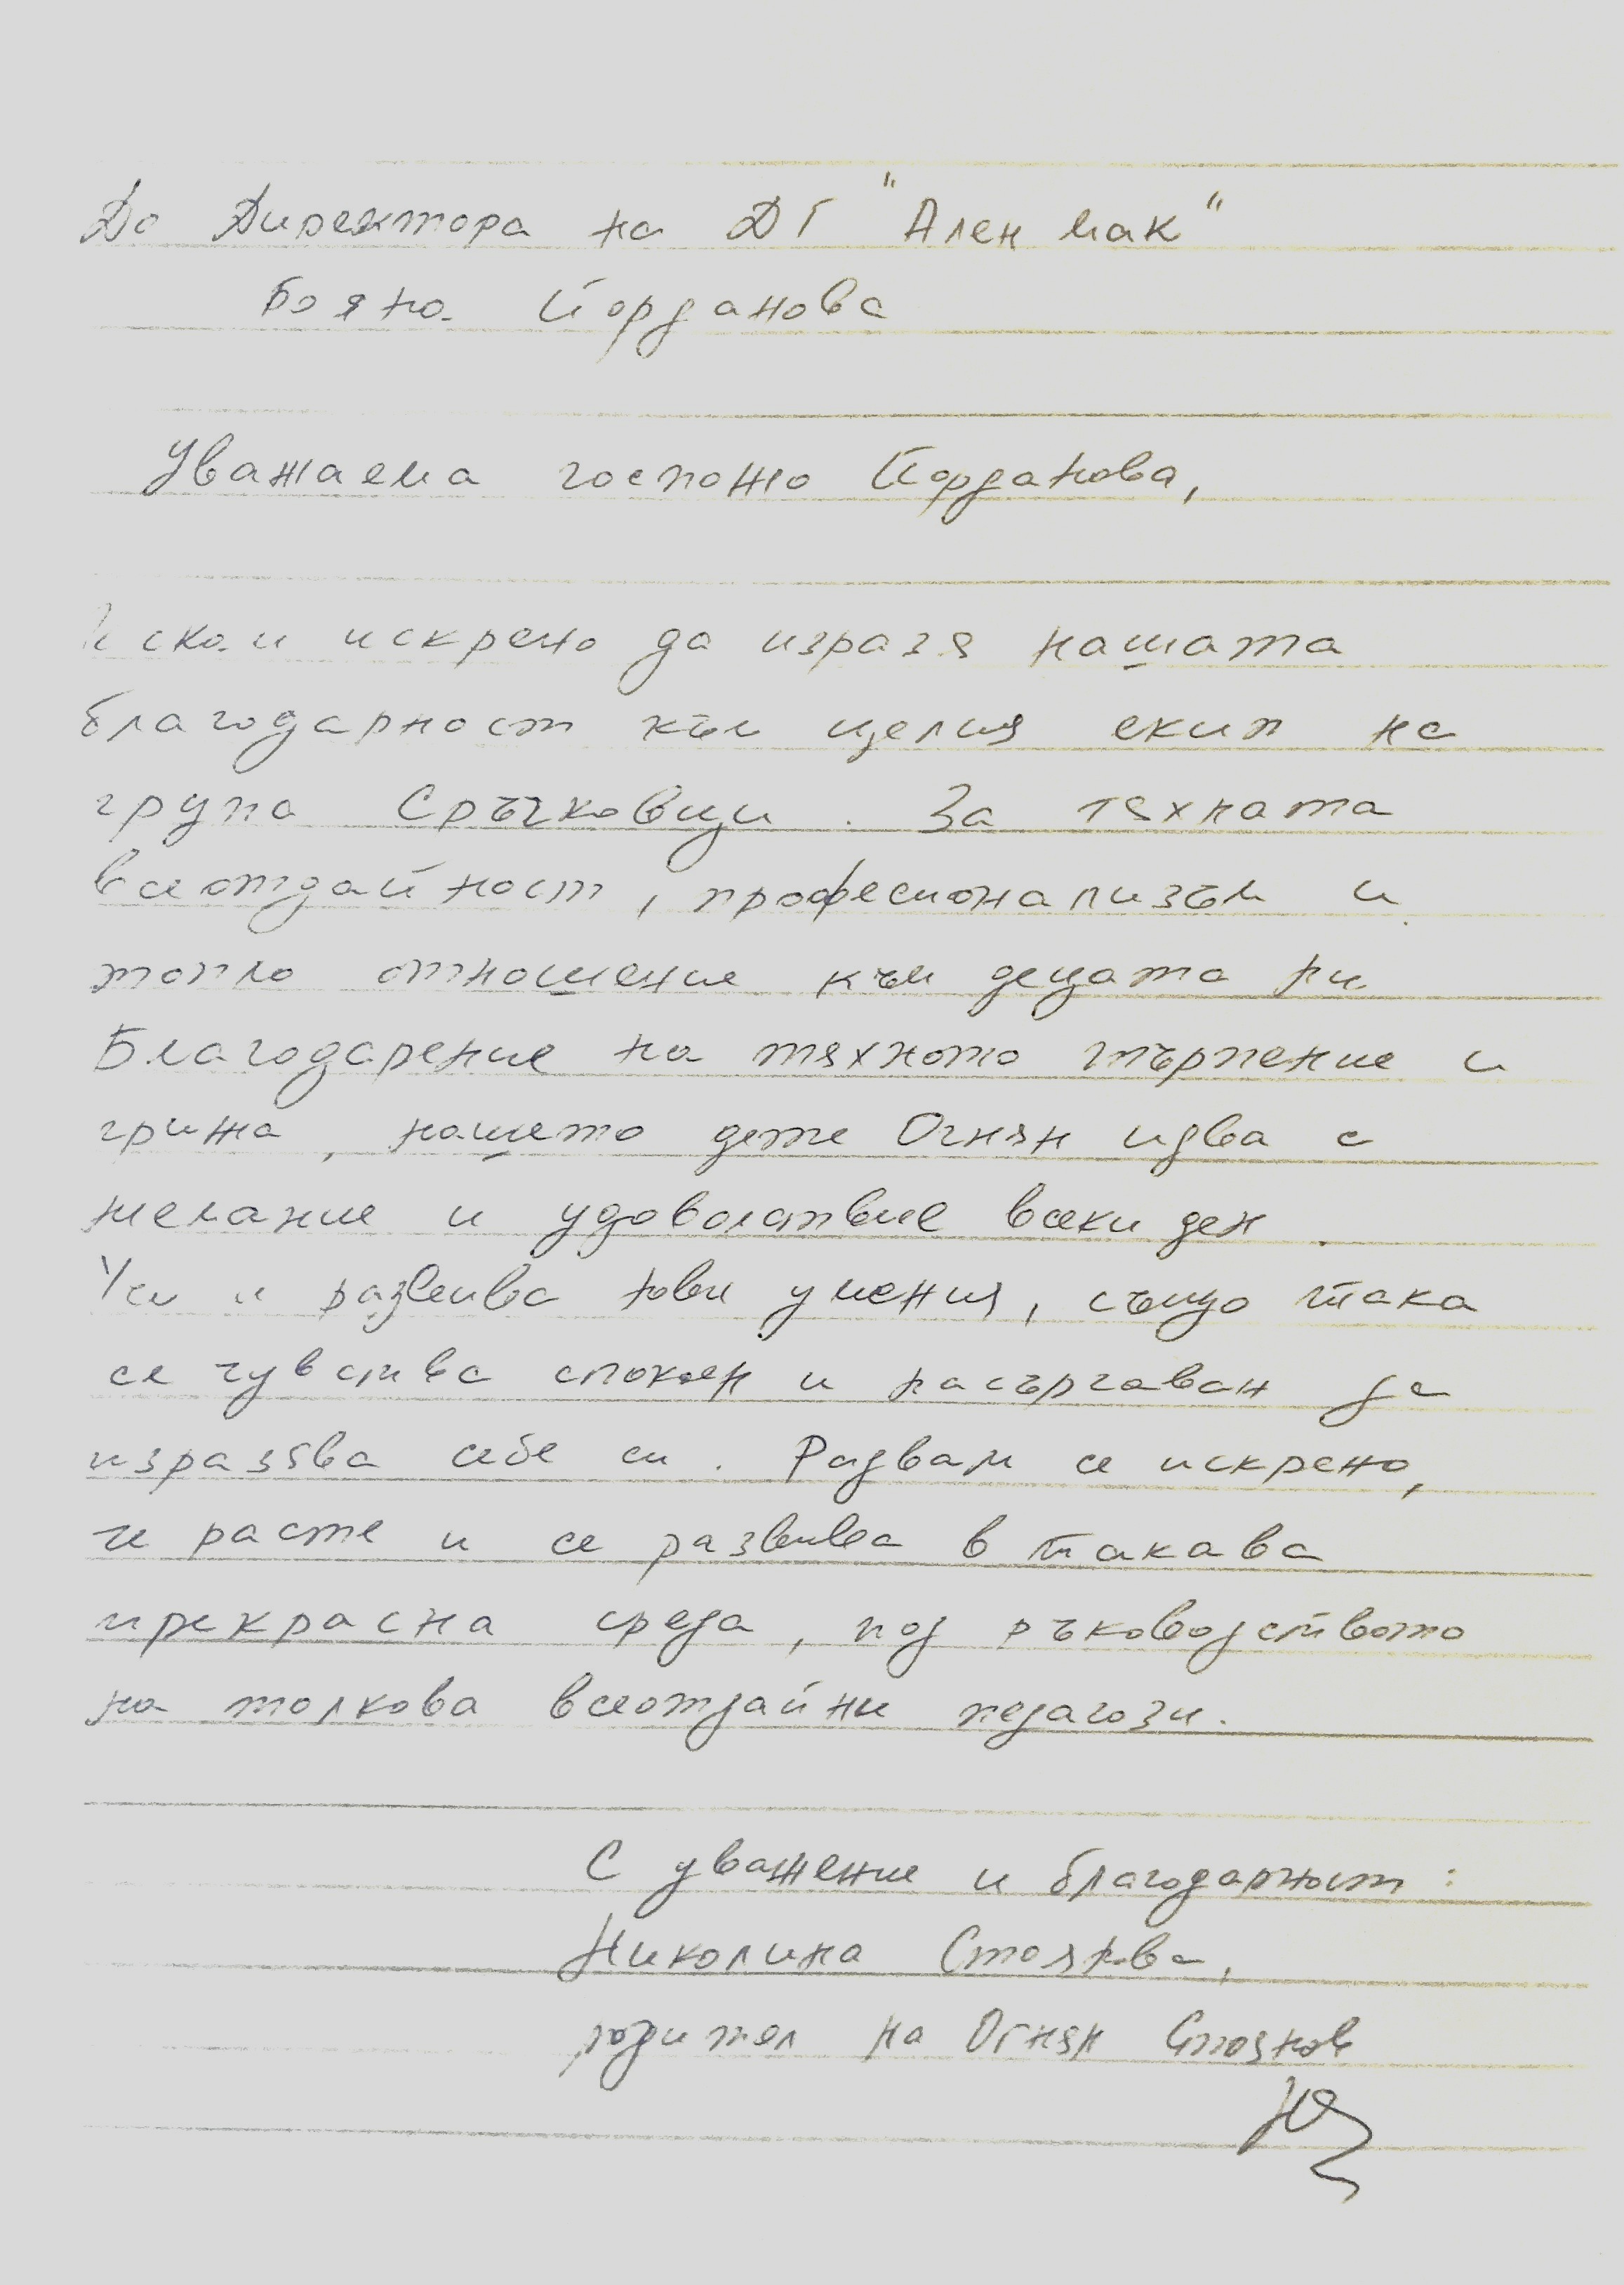 До Директора на ДГ "Ален мак"
Бояна Йорданова
Уважаема госпожо Йорданова,
Искам искрено да изразя нашата
благодарност към целия екип на
група Сръчковци. За тяхната
всеотдайност, професионализъм и
топло отношение към децата ни
Благодарение на тяхното търпение и
грижа, нашето дете Огнян идва с
желание и удоволствие всеки ден.
Учи и развива нови умения, също така
се чувства спокоен и насърчаван да
изразява себе си. Радвам се искрено,
че расте и се развива в такава
прекрасна среда, под ръководството
на толкова всеотдайни педагози.
С уважение и благодарност:
Николина Стоянова,
родител на Огнян Стоянов